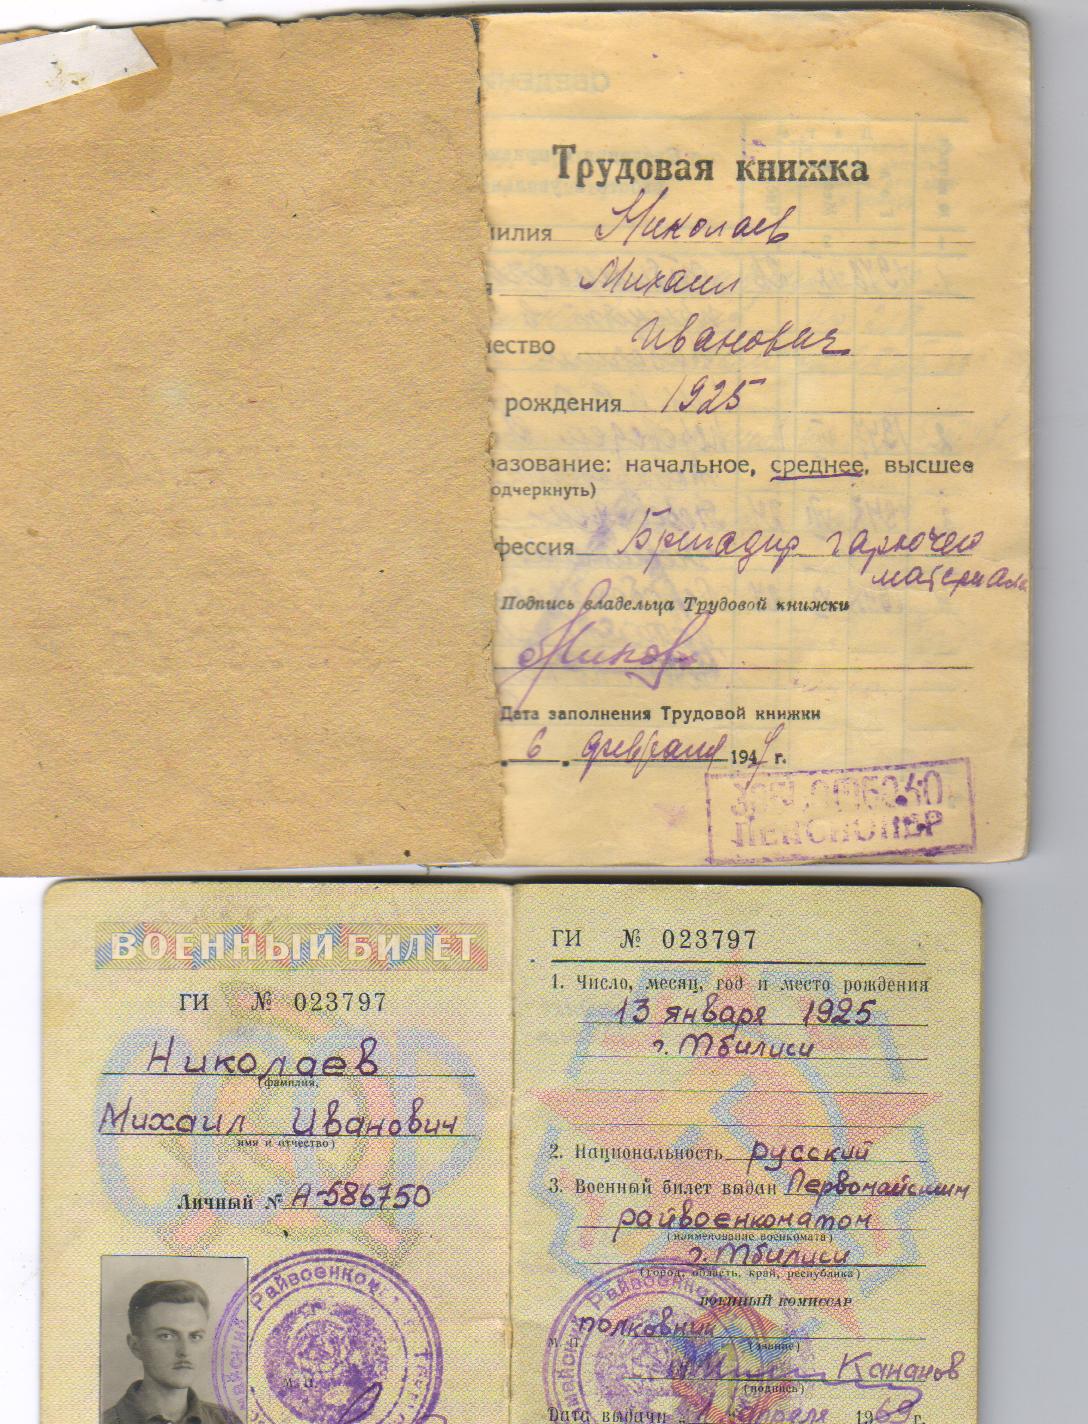 Трудовая книжка
милия Николаев
Михаил
чество Иванович
рождения 1925
разование: начальное, среднее, высшее
одчеркнуть)
фессия Бригадир горючего
материала
Подпись владельца Трудовой книжки
Дата заполнения Трудовой книжки
6 февраля 1947 г.
ПЕНСИОНЕР
ВОЕННЫЙ БИЛЕТ
ГИ № 023797
Николаев
(фамилия,
Михаил Иванович
имя и отчество)
Личный № А-586750
Райвоенком
М. П.
ГИ № 023797
1. Число, месяц, год и место рождения
13 января 1925
г. Тбилиси
2. Национальность русский
3. Военный билет выдан Первомайским
райвоенкоматом
(наименование военкомата)
г. Тбилиси
(город, область, край, республика)
ВОЕННЫЙ КОМИССАР
полковник
М. П.
(звание)
Кананов
(подпись)
Дата выдачи апреля 196 г.